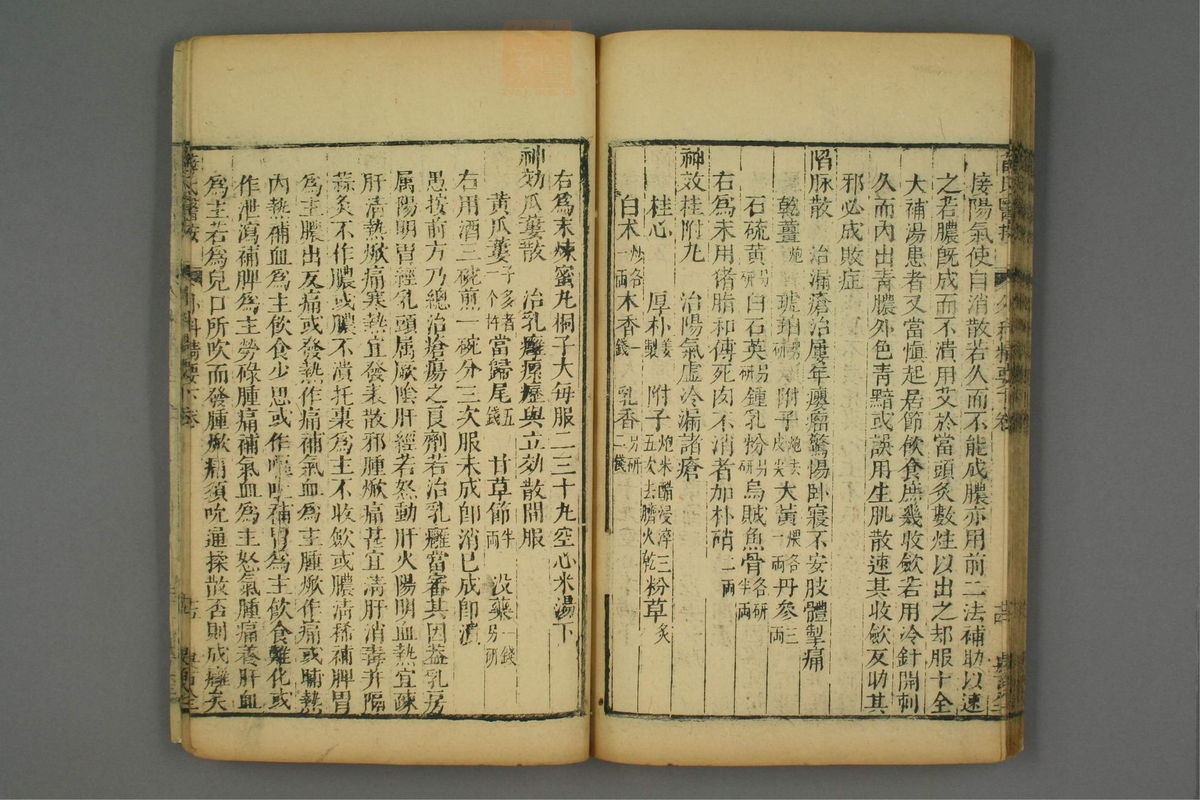 接陽氣使自消散若久而不能成膿亦用前二法補助以速
之若膿旣成而不潰用艾於當頭灸數炷以出之却服十全
大補湯患者又當愼起居節飲食庶幾收歛若用冷針開刺
久而內出靑膿外色靑黯或誤用生肌散速其收歛反助其
邪必成敗症
陷脉散 治漏瘡治屢年癭瘤驚惕卧寢不安肢體掣痛
乾薑炮 琥珀另研 附子炮去皮尖 大黃煨各一兩 丹參三兩
石硫黃另研 白石英另研 鍾乳粉另研 烏賊魚骨各研半兩
右爲末用猪脂和傅死肉不消者加朴硝二兩
神效桂附丸 治陽氣虛冷漏諸瘡
桂心 厚朴姜製 附子炮米醋浸淬三五次去臍火乾 粉草炙
白术炒各一兩 木香一錢 乳香另研二錢
右爲末煉蜜丸桐子大每服二三十丸空心米湯下
神効瓜蔞散 治乳癰瘰癧與立効散間服
黃瓜蔞子多者一个杵 當歸尾五錢 甘草節半兩 沒藥一錢另研
右用酒三碗煎一碗分三次服未成卽消已成卽潰
愚按前方乃總治瘡瘍之良劑若治乳癰當審其因葢乳房
属陽明胃經乳頭属厥陰肝經若怒動肝火陽明血熱宜疎
肝淸熱焮痛寒熱宜發表散邪腫焮痛甚宜淸肝消毒并隔
蒜灸不作膿或膿不潰托裏爲主不收歛或膿淸稀補脾胃
爲主膿出反痛或發熱作痛補氣血爲主腫焮作痛或晡熱
內熱補血爲主飲食少思或作嘔吐補胃爲主飲食難化或
作泄瀉補脾爲主勞碌腫痛補氣血爲主怒氣腫痛養肝血
爲主若爲兒口所吹而發腫焮痛須吮通揉散否則成癰矣